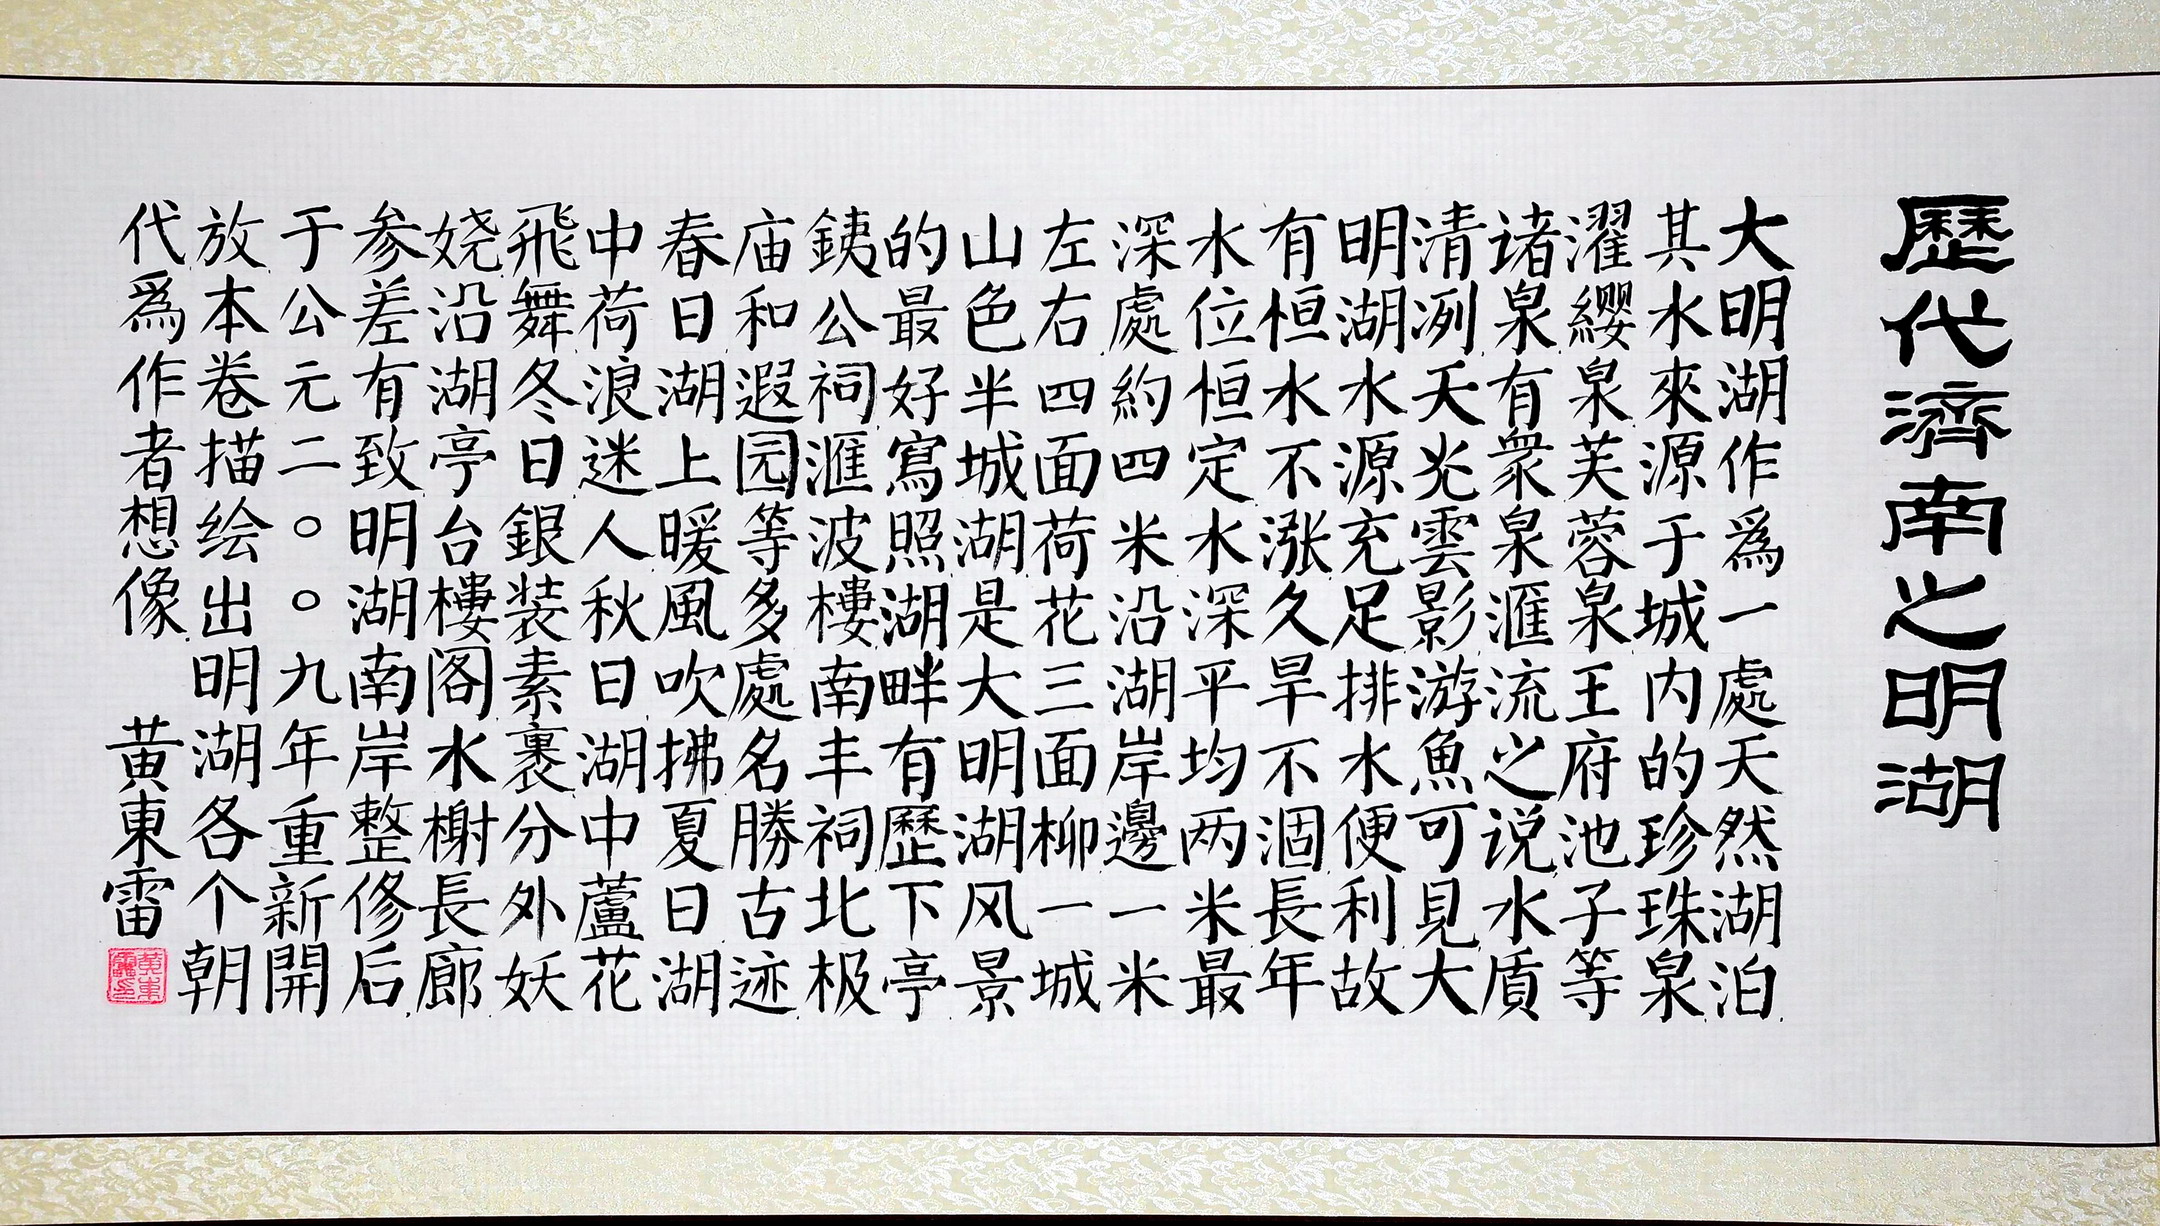 歷代濟南之明湖
大明湖作爲一處天然湖泊
其水來源于城内的珍珠泉
濯纓泉芙蓉泉王府池子等
诸泉有衆泉滙流之说水质
清洌天光雲影游魚可見大
明湖水源充足排水便利故
有恒水不涨久旱不涸長年
水位恒定水深平均两米最
深處約四米沿湖岸邊一米
左右四面荷花三面柳一城
山色半城湖是大明湖风景
的最好寫照湖畔有歷下亭
銕公祠滙波樓南丰祠北极
庙和遐园等多處名勝古迹
春日湖上暖風吹拂夏日湖
中荷浪迷人秋日湖中蘆花
飛舞冬日銀装素裹分外妖
娆沿湖亭台樓阁水榭長廊
参差有致明湖南岸整修后
于公元二〇〇九年重新開
放本卷描绘出明湖各个朝
代爲作者想像 黄東雷